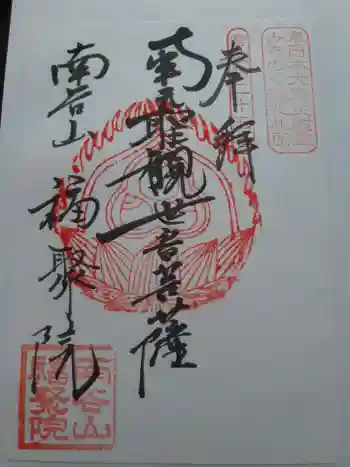 奉拝
南無聖観世音菩薩
南谷山
福聚院
南谷山
福聚院